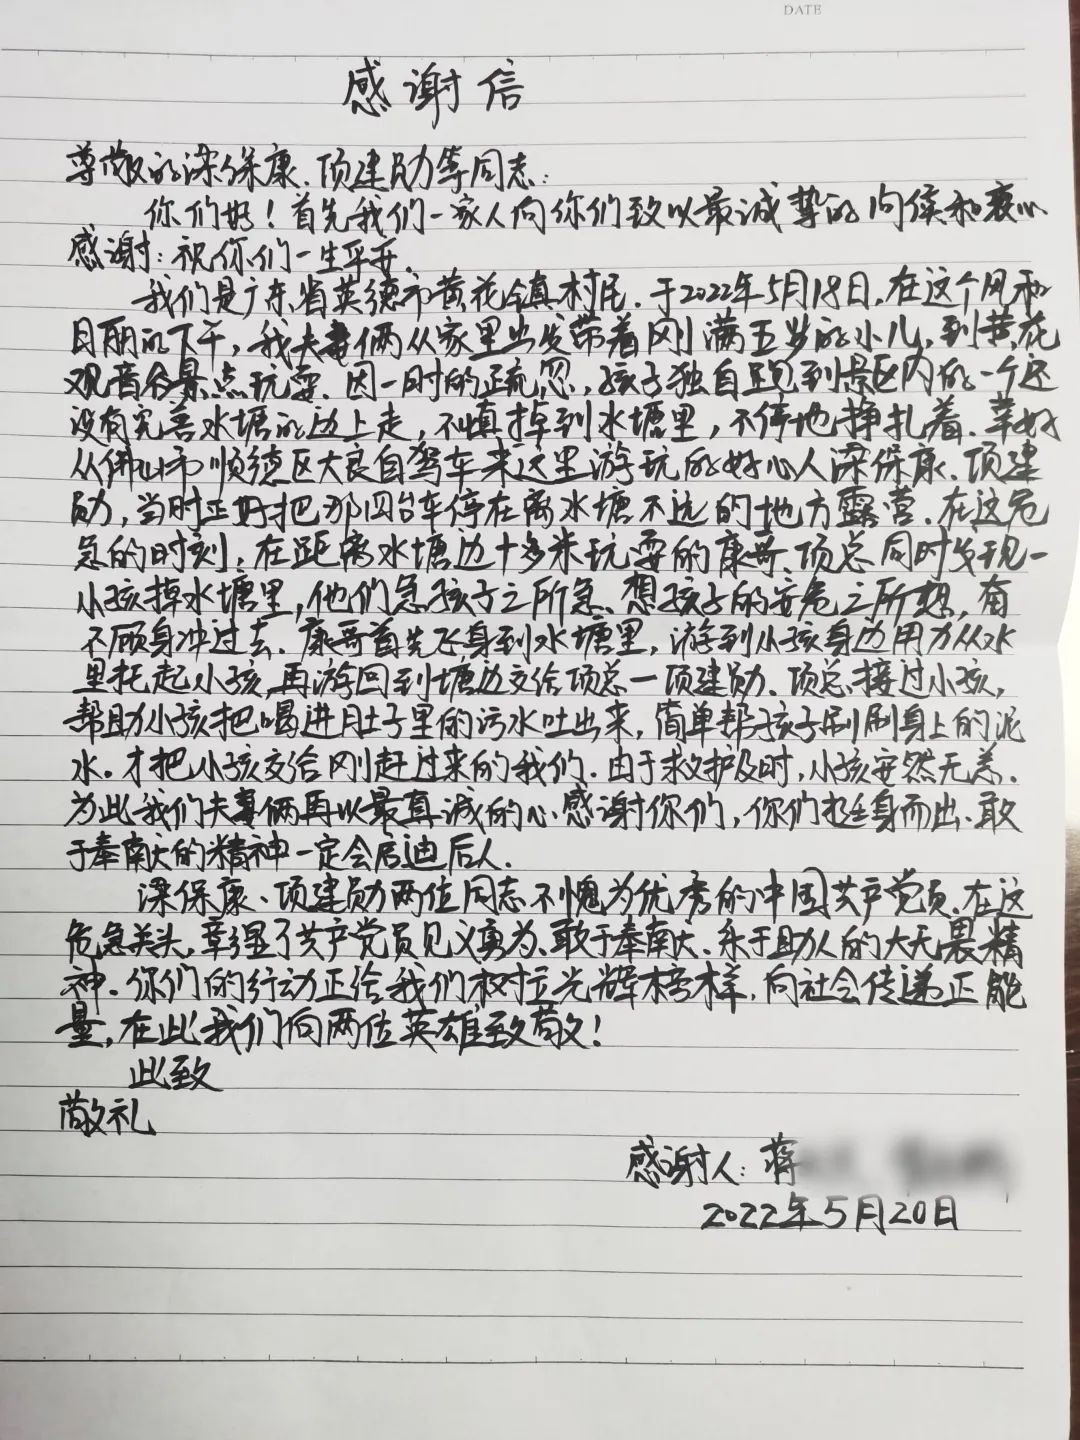 DATE
感谢信
尊敬的梁保康、项建勋等同志：
你们好！首先我们一家人向你们致以最诚挚的问候和衷心
感谢：祝你们一生平安.
我们是广东省英德市黄花镇村民.于2022年5月18日,在这个风和
日丽的下午，我夫妻俩从家里出发带着刚满五岁的小儿,到黄花
观音谷景点玩耍.因一时的疏忽，孩子独自跑到景区内的一个还
没有完善水塘的边上走，不慎掉到水塘里，不停地挣扎着.幸好
从佛山市顺德区大良自驾车来这里游玩的好心人梁保康、项建
勋，当时正好把那四台车停在离水塘不远的地方露营.在这危
急的时刻，在距离水塘边十多米玩耍的康哥、项总同时发现一
小孩掉水塘里，他们急孩子之所急、想孩子的安危之所想，奋
不顾身冲过去.康哥首先飞身到水塘里，游到小孩身边用力从水
里托起小孩,再游回到塘边交给项总一项建勋、项总接过小孩，
帮助小孩把喝进肚子里的污水吐出来，简单帮孩子刷刷身上的泥
水.才把小孩交给刚赶过来的我们.由于救护及时，小孩安然无恙.
为此我们夫妻俩再以最真诚的心感谢你们，你们挺身而出、敢
于奉献的精神一定会启迪后人.
梁保康、项建勋两位同志不愧为优秀的中国共产党员、在这
危急关头,章显了共产党员见义勇为、敢于奉献、乐于助人的大无畏精
神.你们的行动正给我们树立光辉榜样，向社会传递正能
量，在此我们向两位英雄致敬！
此致
敬礼
感谢人：蒋
2022年5月20日